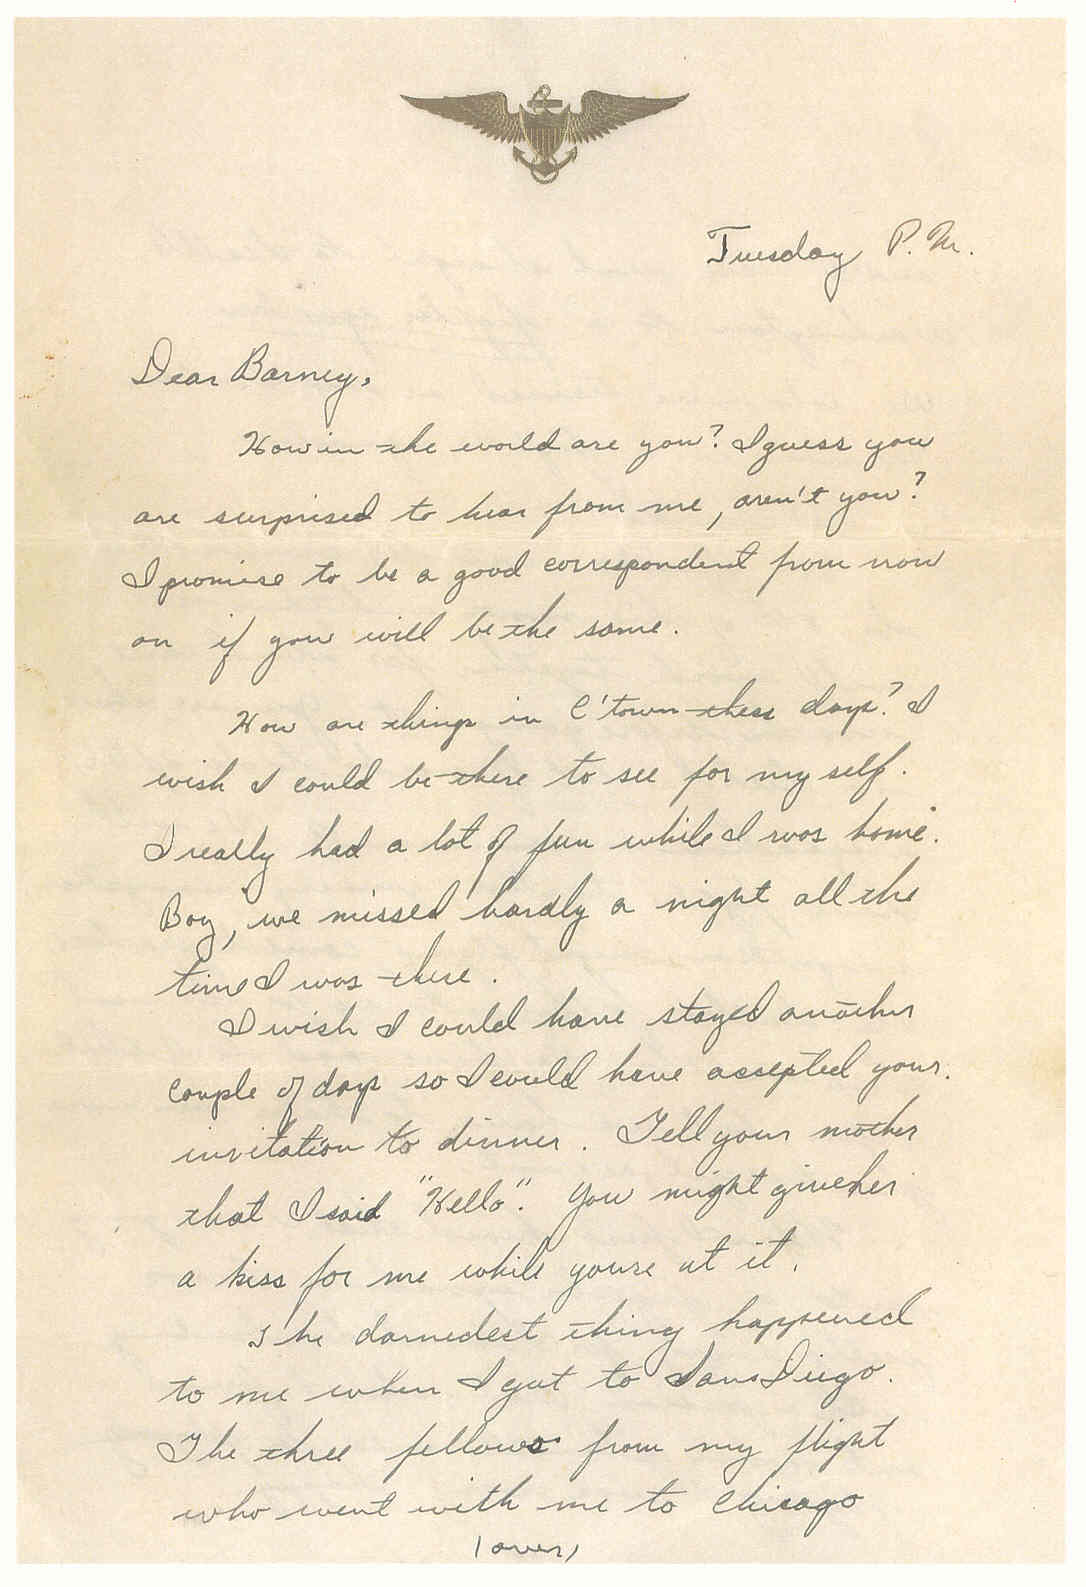 Tuesday P.M.
Dear Barney,
How in the world are you? I guess you
are surprised to hear from me, aren't you?
I promise to be a good correspondent from now
on if you will be the same.
How are things in C'town these days? I
wish I could be there to see for my self.
I really had a lot of fun while I was home.
Boy, we missed hardly a night all the
time I was there.
I wish I could have stayed another
couple of days so I could have accepted your
invitation to dinner. Tell your mother
that I said "Hello". You might give her
a kiss for me while youre at it.
The darnedest thing happened
to me when I got to San Diego.
The three fellows from my flight
who went with me to Chicago
(over)